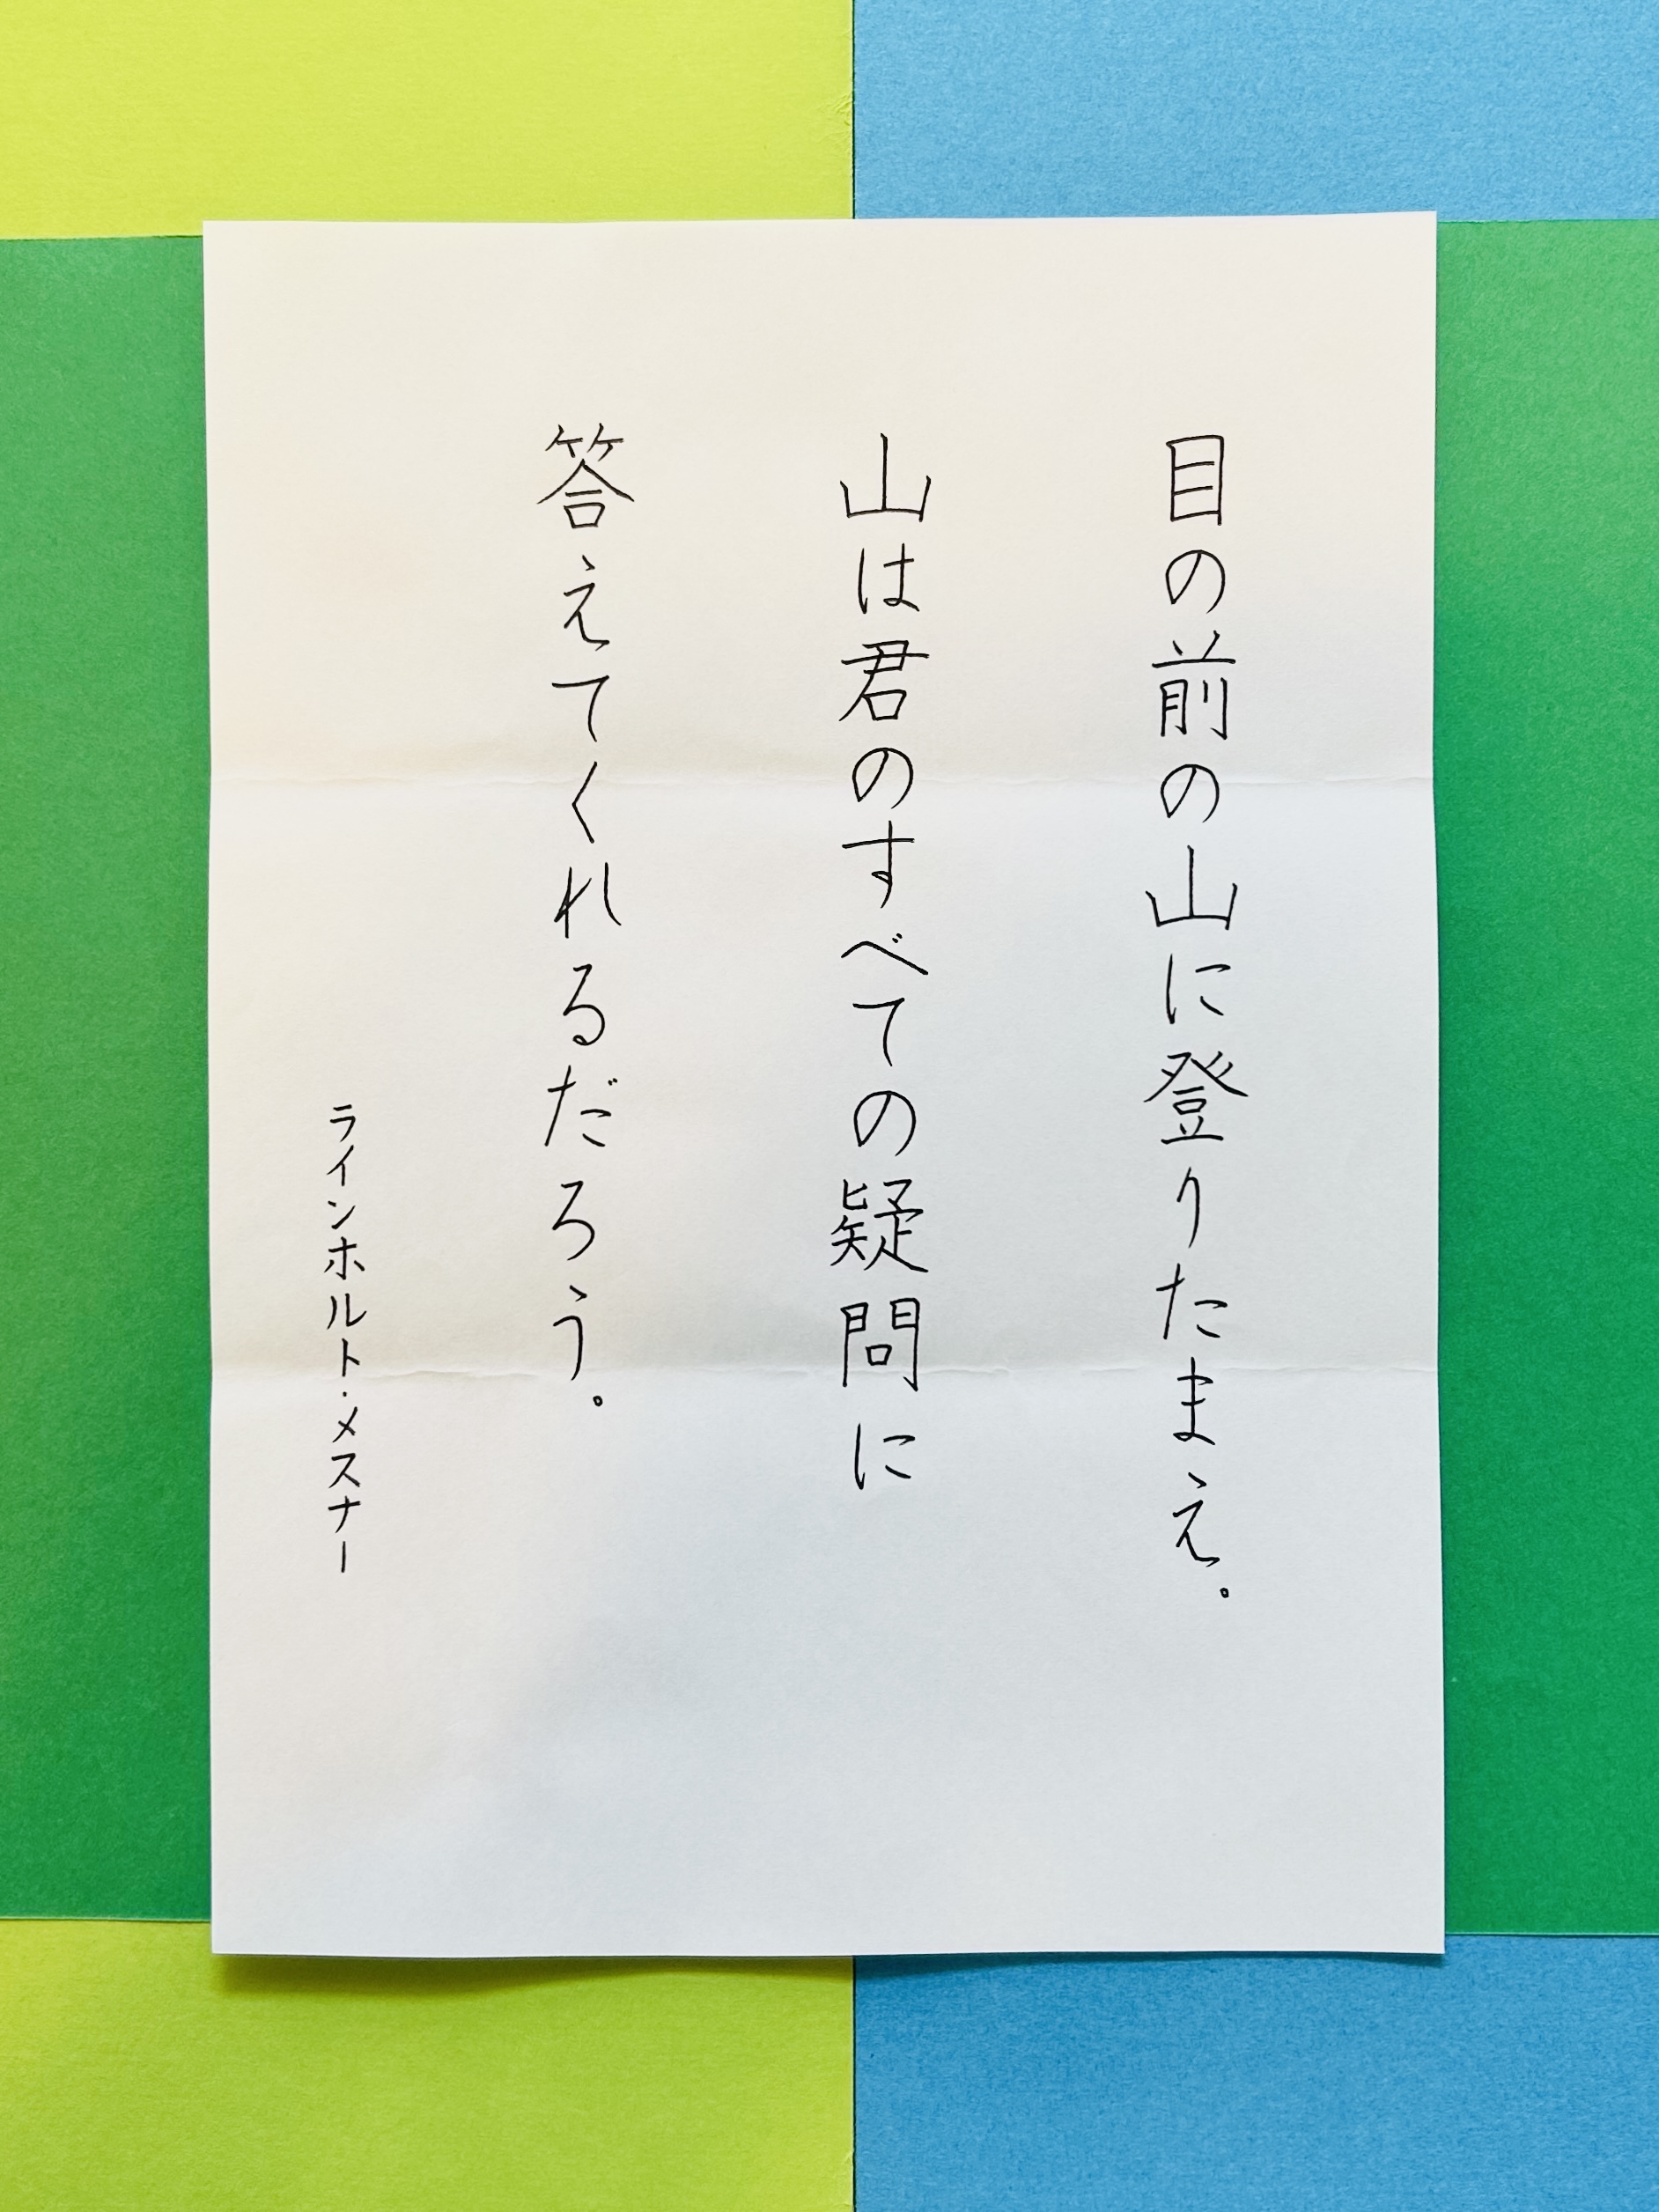 目の前の山に登りたまえ。
山は君のすべての疑問に
答えてくれるだろう。
ラインホルト・メスナー